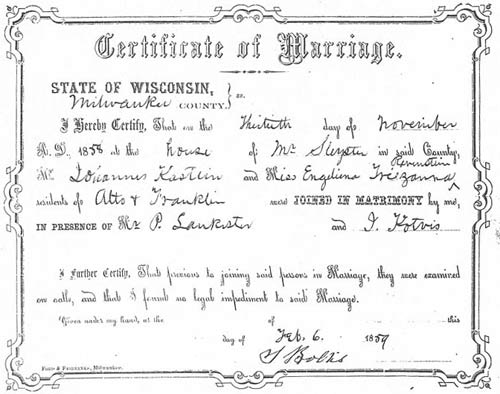 Certificate of Marriage.
STATE OF WISCONSIN, } ss.
Milwaukee COUNTY.
I Hereby Certify, That on the Thirtieth day of November
A. D., 1858 at the house of Mr Slegster in said County,
Hevenstein
Mr. Johannes Kastein and Miss Engelina Frezanna
residents of Alto & Franklin were JOINED IN MATRIMONY by me,
IN PRESENCE OF Mr P. Lankester and J. Kotvis
I Further Certify, That previous to joining said persons in Marriage, they were examined
on oath, and that I found no legal impediment to said Marriage.
Given under my hand, at the of this
day of Feb. 6. 1859
S Bolks
FORD & FAIRBANKS, Milwaukee.